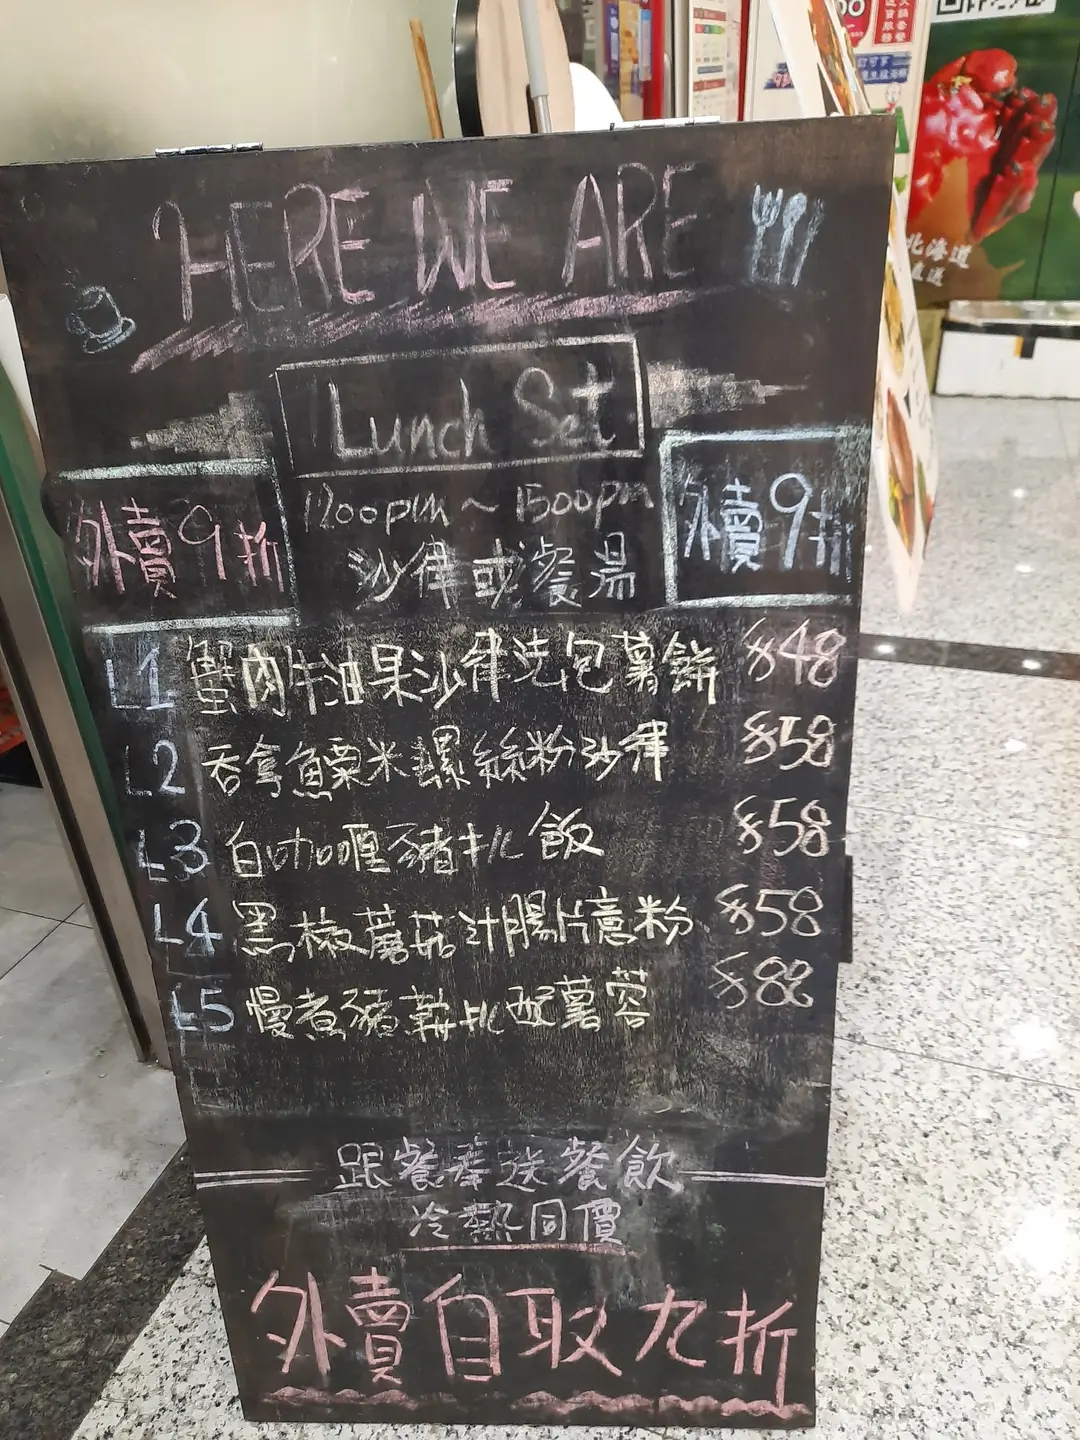 HERE WE ARE
Lunch Set
外賣9折
1200pm ~ 1500pm
外賣9折
沙律或餐湯
L1 蟹肉牛油果沙律洗包薯餅 $48
L2 吞拿魚粟米螺絲粉沙律 $58
L3 白咖喱豬扒飯 $58
L4 黑椒蘑菇汁腸片意粉 $58
L5 慢煮豬鞍扒配薯蓉 $88
跟餐奉送餐飲
冷熱同價
外賣自取九折
北海道
直送